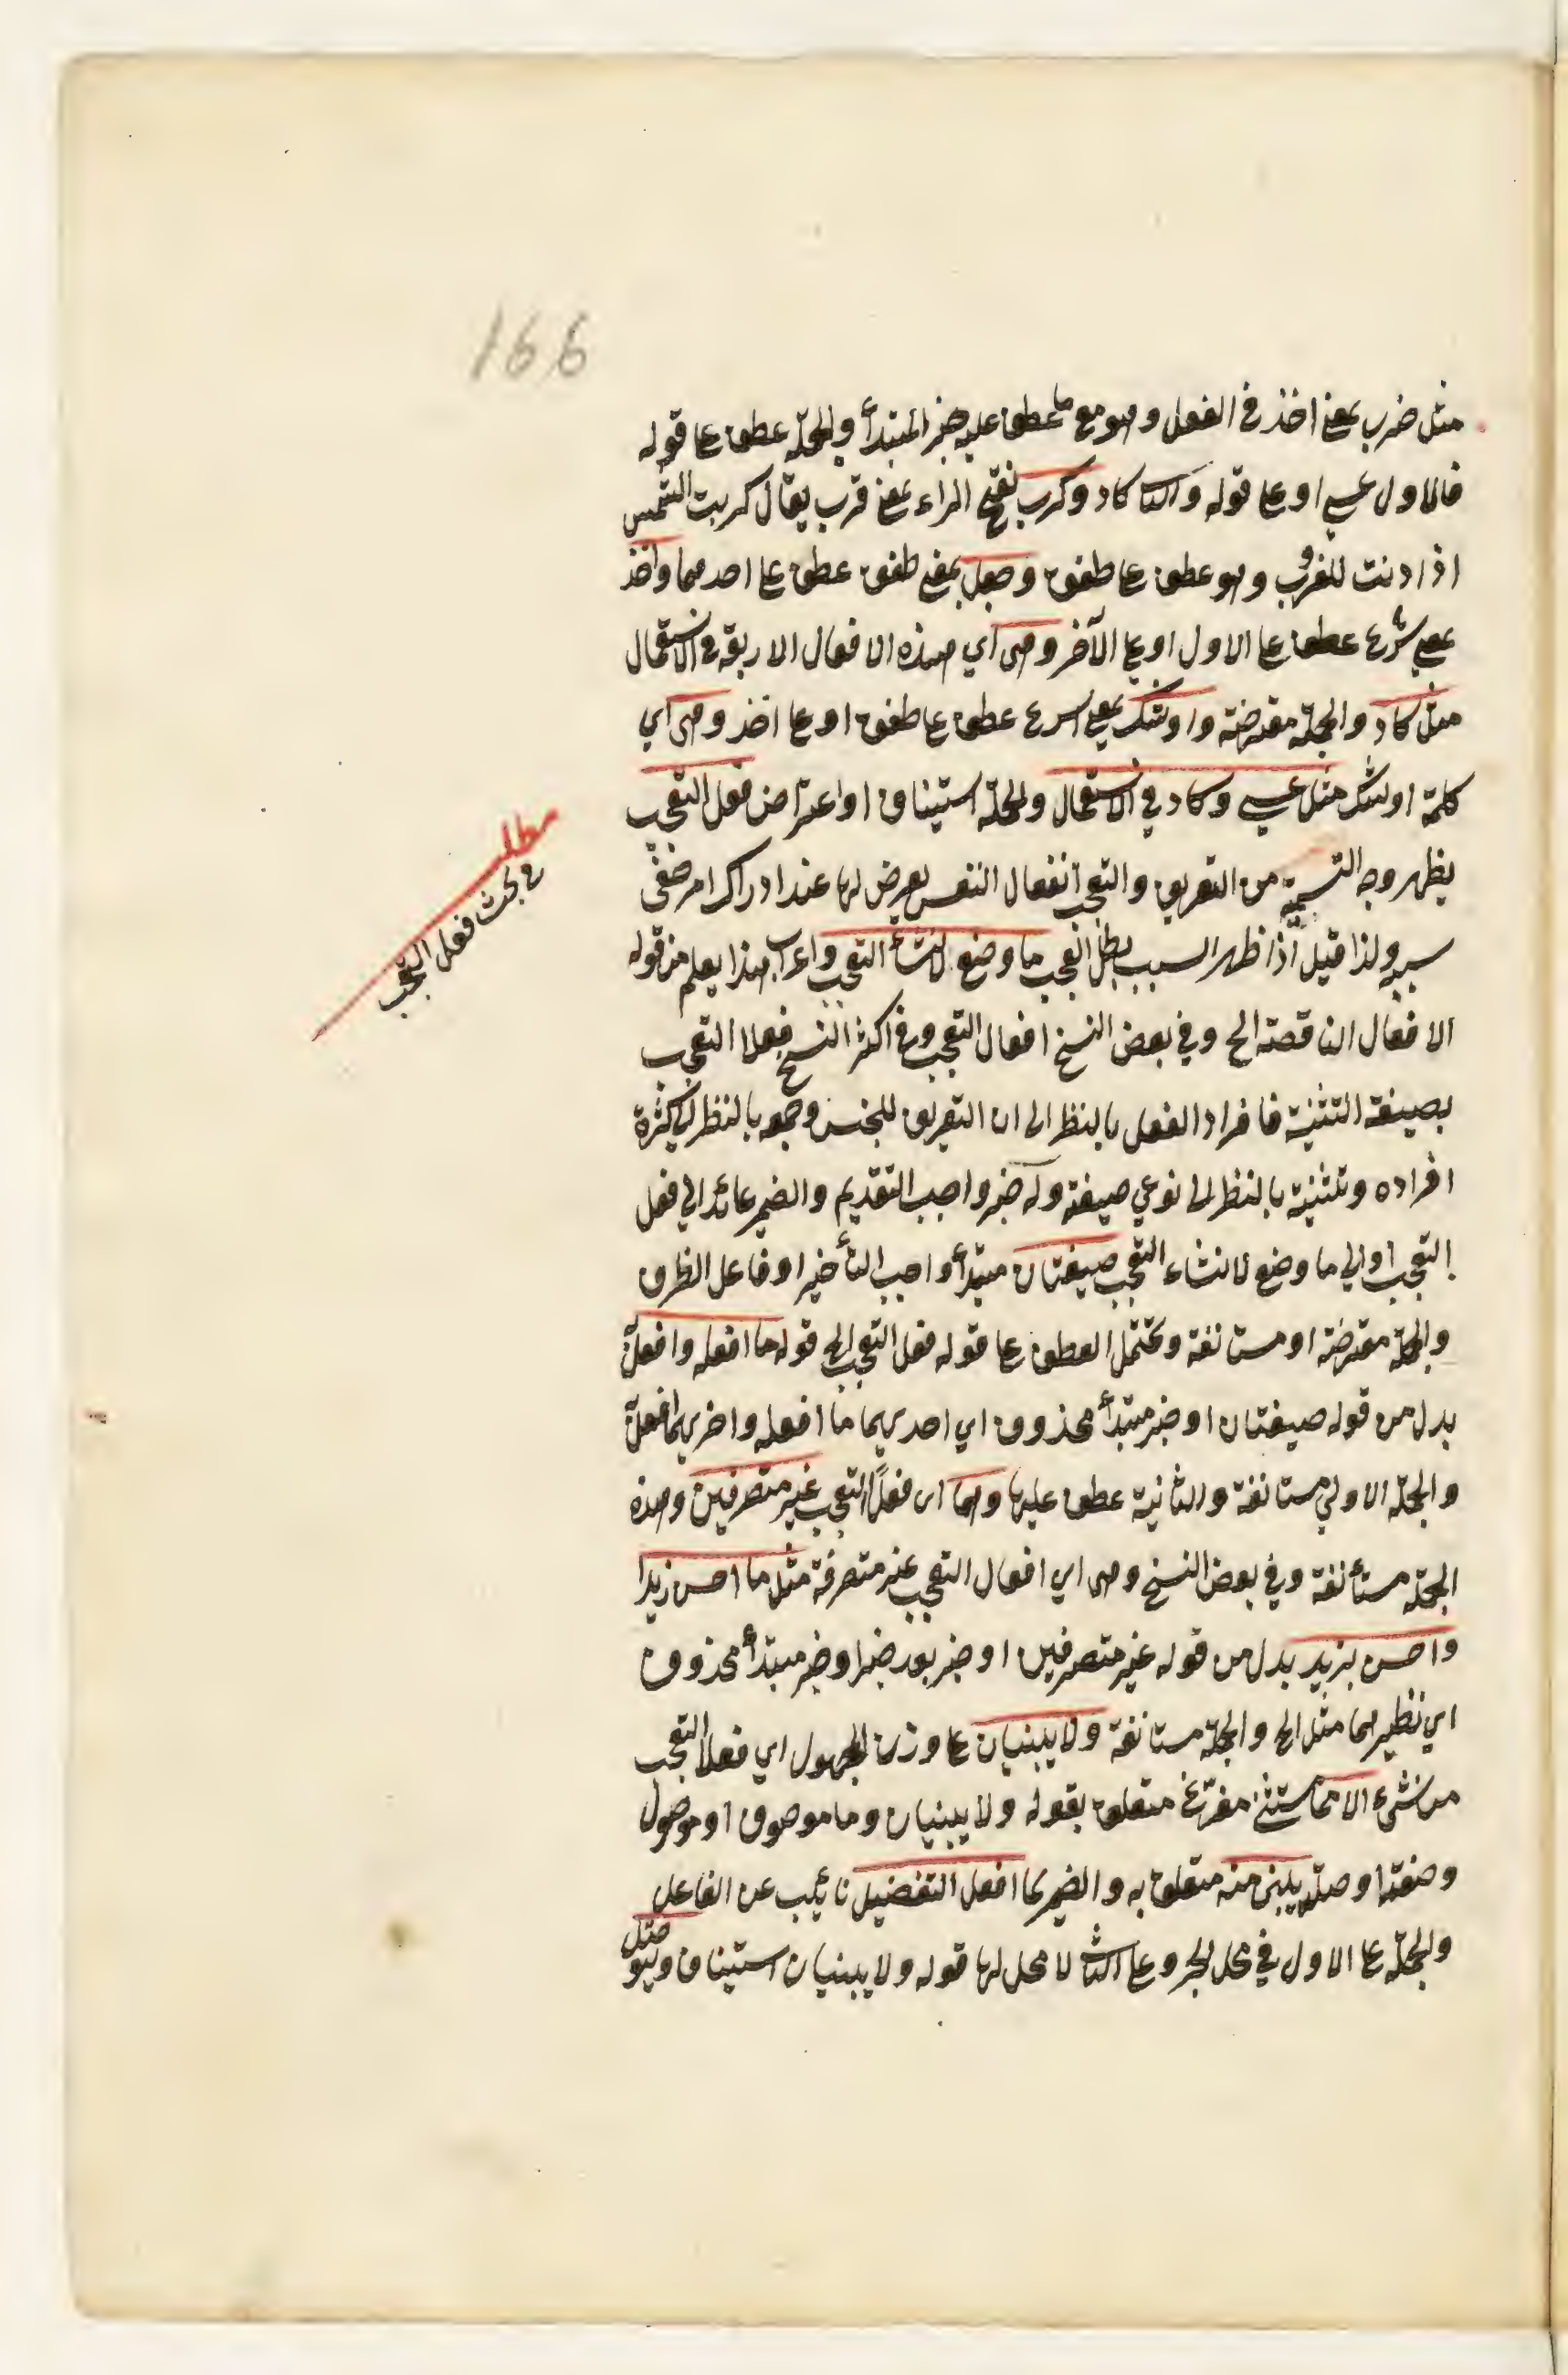 166
مثل ضرب بمعنى اخذ في الفعل وهو مع ما عطف عليه خبر المبتدأ والجملة عطف على قوله
فالاول عسى او على قوله والثاني كاد وكرب بفتح الراء بمعنى قرب يقال كربت الشمس
اذا دنت للغروب وهو عطف على طفق وجعل بمعنى طفق عطف على احدهما واخذ
بمعنى شرع عطف على الاول او على الآخر وهى اي هذه الافعال الاربعة في الاستعمال
مثل كاد والجملة معترضة واوشك بمعنى اسرع عطف على طفق او على اخذ وهى اي
كلمة اوشك مثل عسى وكاد في الاستعمال والجملة استيناف او اعتراض فعل التعجب
يظهر وجه التسمية من التعريف والتعجب انفعال النفس يعرض لها عند ادراك امر خفي
سببه ولذا قيل اذا ظهر السبب بطل العجب ما وضع لانشأ التعجب واعراب هذا يعلم من قوله
الافعال الناقصة الخ وفي بعض النسخ افعال التعجب وفي اكثر النسخ فعلا التعجب
بصيغة التثنية فافراد الفعل بالنظر الى ان التعريف للجنس وجمعه بالنظر الى كثرة
افراده وتثنيته بالنظر الى نوعي صيغته وله خبر واجب التقديم والضمير عائد الى فعل
التعجب او الى ما وضع لانشاء التعجب صيغتان مبتدأ واجب التأخير او فاعل الظرف
والجملة معترضة او مستانفة ويحتمل العطف على قوله فعل التعجب الخ قوله ما افعله وافعل به
بدل من قوله صيغتان او خبر مبتدأ محذوف اي احديهما ما افعله واخريهما افعل به
والجملة الاولى مستانفة والثانية عطف عليها وهما اى فعلا التعجب غير متصرفين وهذه
الجملة مستأنفة وفي بعض النسخ وهى اي افعال التعجب غير متصرفة مثل ما احسن زيدا
واحسن بزيد بدل من قوله غير متصرفين او خبر بعد خبر او خبر مبتدأ محذوف
اي نظيرهما مثل الخ والجملة مستانفة ولا يبنيان على وزن المجهول اي فعلا التعجب
من شيء الا مما مستثنى مفرّغ متعلق بقوله ولا يبنيان وما موصوف او موصول
وصفته او صلته يبنى منه متعلق به والضمير لما افعل التفضيل نائب عن الفاعل
والجملة على الاول في محل الجر وعلى الثاني لا محل لها قوله ولا يبنيان استيناف
مطلب
في بحث فعل التعجب